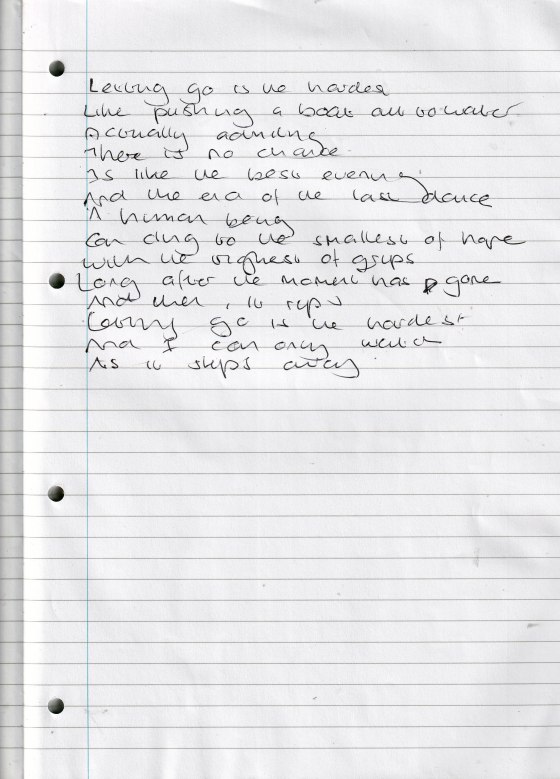 Letting go is the hardest
Like pushing a boat out to water
Actually admitting
There is no chance
Is like the best evening
And the end of the last dance
A human being
Can cling to the smallest of hope
With the tightest of grips
Long after the moment has gone
And then, it rips
Letting go is the hardest
And I can only watch
As it slips away